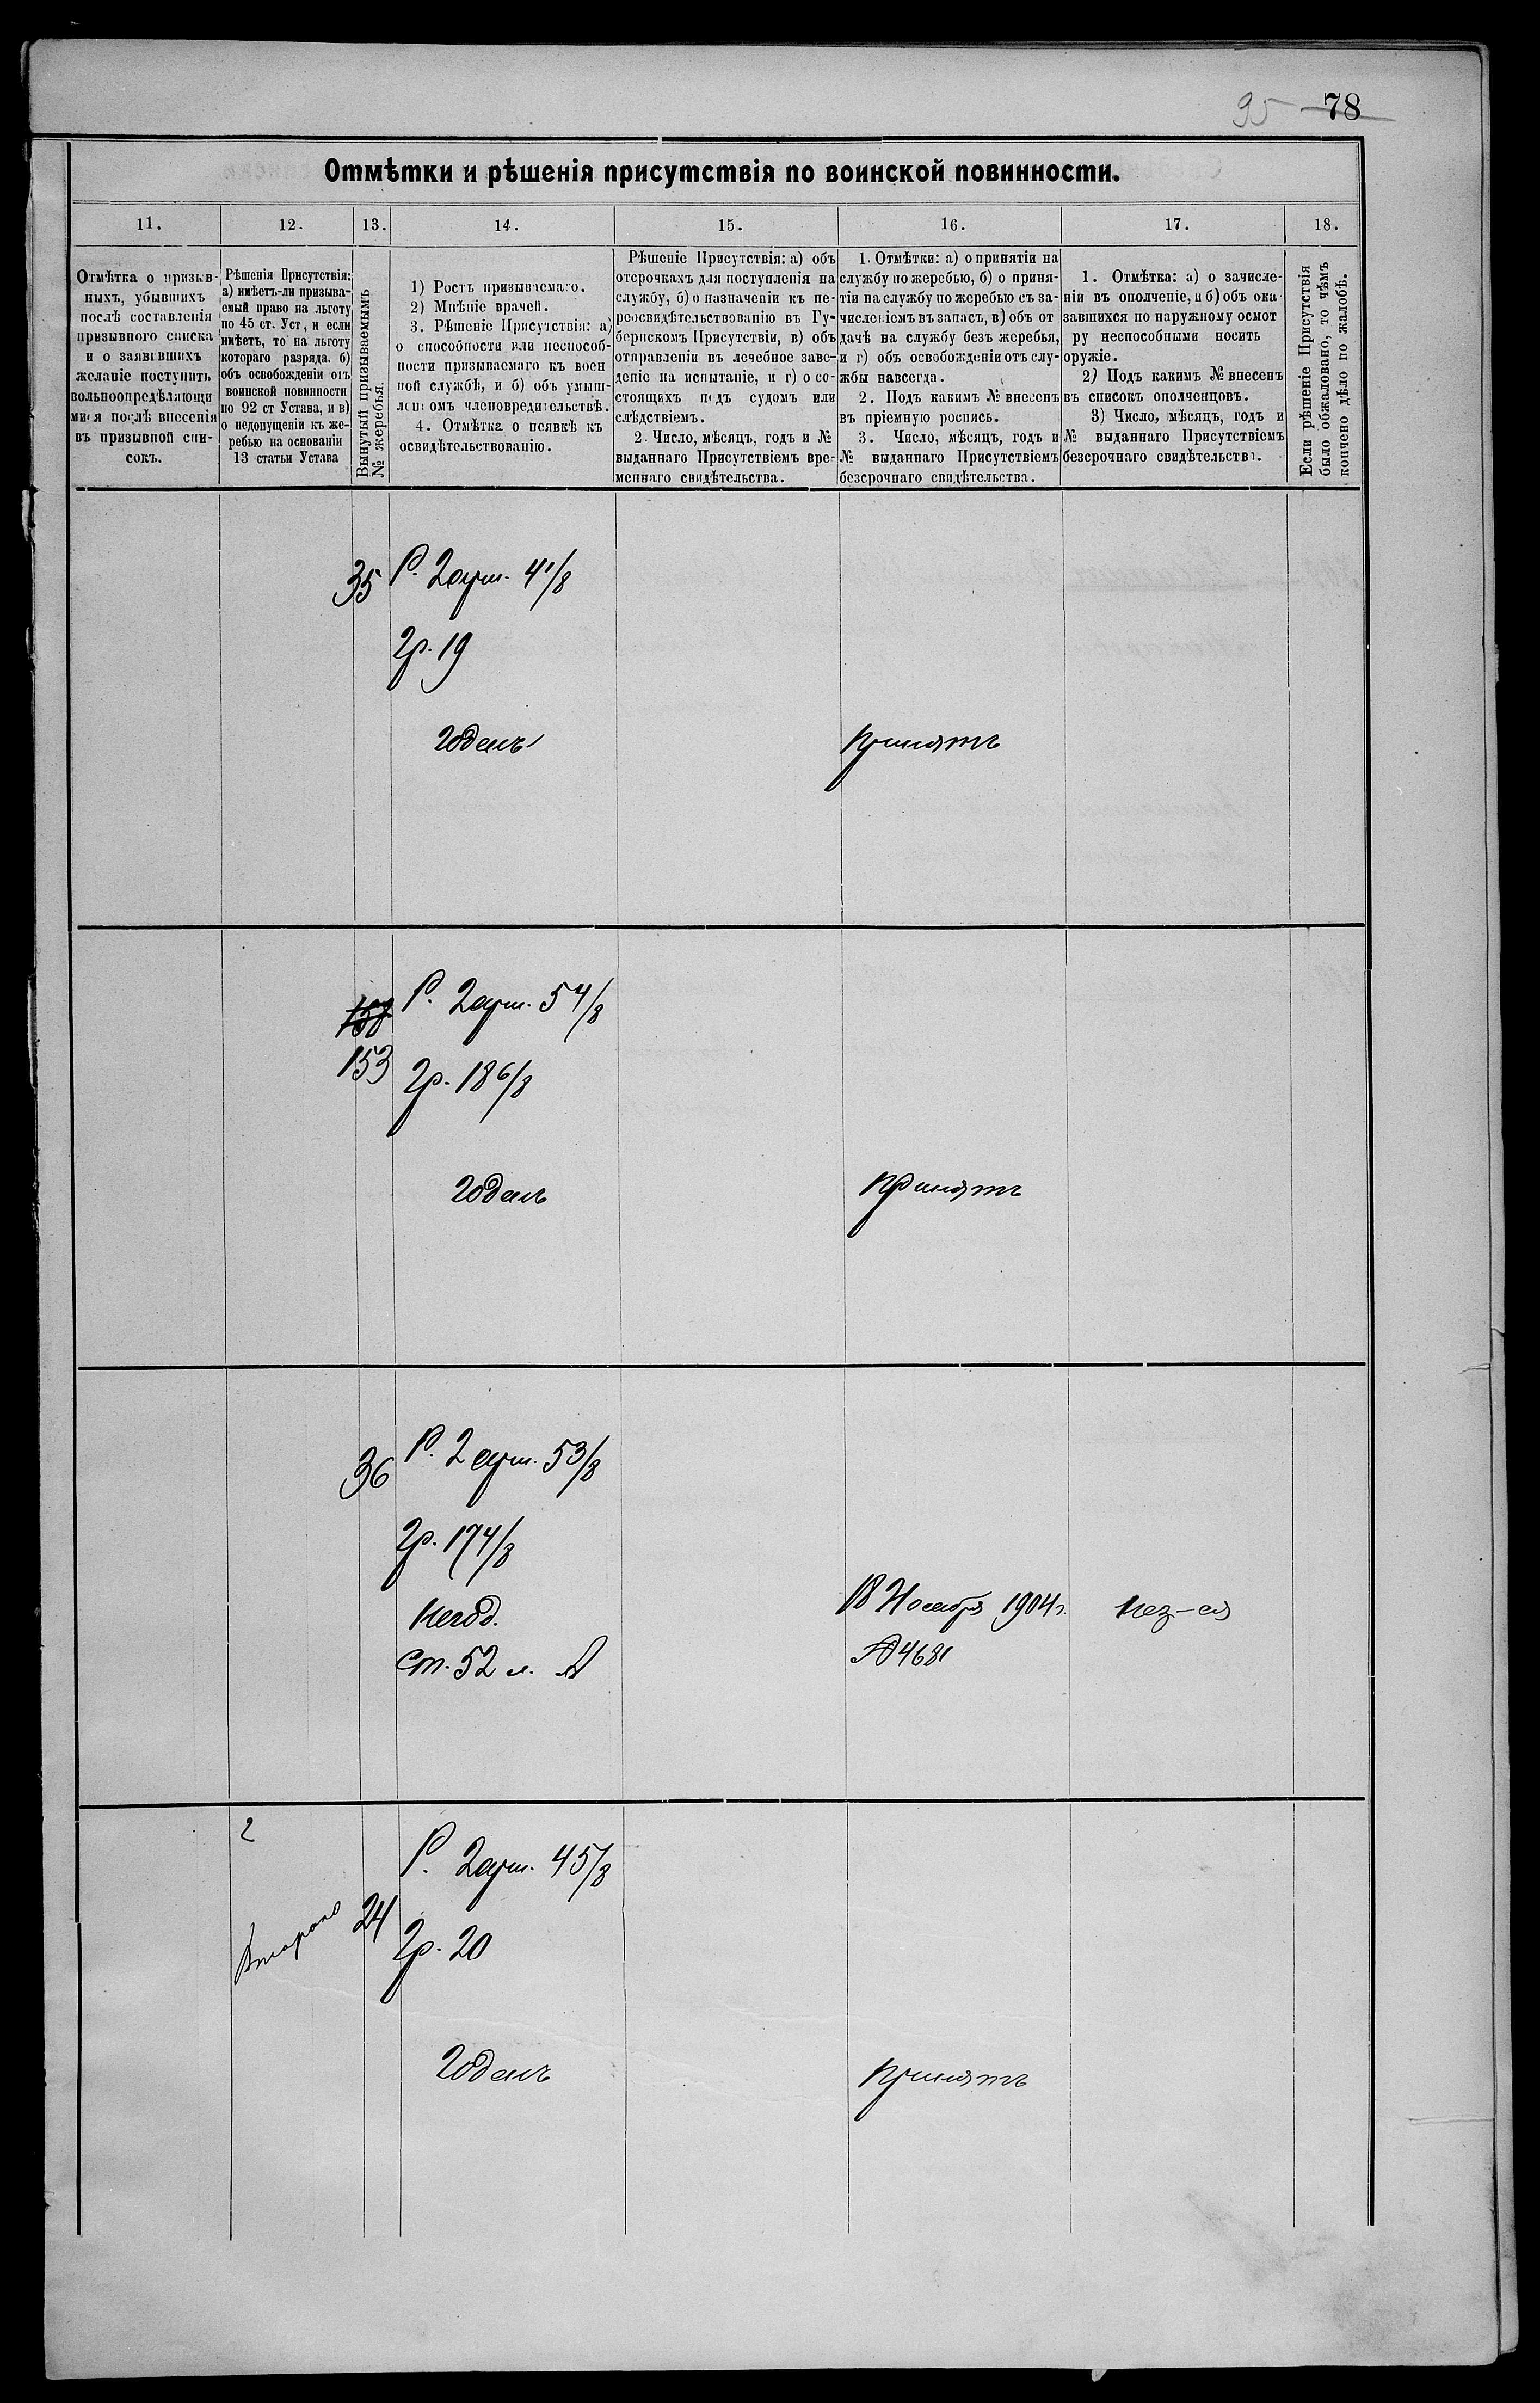 95 78
Отмѣтки и рѣшенія присутствія по воинской повинности.
11.
12.
13.
14.
15.
16.
17.
18.
Отмѣтка о призыв-
ныхъ, убывшихъ
послѣ составленія
призывного списка
и о заявившихъ
желаніе поступить
вольноопредѣляющи
мися послѣ внесенія
въ призывной спи-
сокъ.
Рѣшенія Присутствія:
а) имѣетъ-ли призыва-
емый право на льготу
по 45 ст. Уст, и если
имѣетъ, то на льготу
котораго разряда. б)
объ освобожденіи отъ
воинской повинности
по 92 ст Устава, и в)
о недопущеніи къ же-
ребью на основаніи
13 статьи Устава
Вынутый призываемымъ
№ жеребья.
1) Ростъ призываемаго.
2) Мнѣніе врачей.
3. Рѣшеніе Присутствія: а)
о способности или неспособ-
ности призываемаго къ воен
ной службѣ, и б) объ умыш-
ленномъ членовредительствѣ.
4. Отмѣтка о неявкѣ къ
освидѣтельствованію.
Рѣшеніе Присутствія: а) объ
отсрочкахъ для поступленія на
службу, б) о назначеніи къ пе-
реосвидѣтельствованію въ Гу-
бернскомъ Присутствіи, в) объ
отправленіи въ лечебное заве-
деніе на испытаніе, и г) о со-
стоящихъ подъ судомъ или
слѣдствіемъ.
2. Число, мѣсяцъ, годъ и №
выданнаго Присутствіемъ вре-
меннаго свидѣтельства.
1. Отмѣтки: а) о принятіи на
службу по жеребью, б) о приня-
тіи на службу по жеребью съ за-
численіемъ въ запасъ, в) объ от
дачѣ на службу безъ жеребья,
и г) объ освобожденіи отъ слу-
жбы навсегда.
2. Подъ какимъ № внесенъ
въ пріемную роспись.
3. Число, мѣсяцъ, годъ и
№ выданнаго Присутствіемъ
безсрочнаго свидѣтельства.
1. Отмѣтка: а) о зачисле-
ніи въ ополченіе, и б) объ ока
завшихся по наружному осмот
ру неспособными носить
оружіе.
2) Подъ какимъ № внесенъ
въ списокъ ополченцовъ.
3) Число, мѣсяцъ, годъ и
№ выданнаго Присутствіемъ
безсрочнаго свидѣтельства.
Если рѣшеніе Присутствія
было обжаловано, то чѣмъ
кончено дѣло по жалобѣ.
35 Р. 2 арш. 4 1/8
Гр. 19
годенъ принятъ
158 Р. 2 арш. 5 4/8
153 Гр. 18 6/8
годенъ принятъ
36 Р. 2 арш. 5 3/8
Гр. 17 4/8
негод. 18 Ноября 1904 г.
ст. 52 л. А № 4681
2
Р. 2 арш. 4 5/8
24
Гр. 20
годенъ принятъ